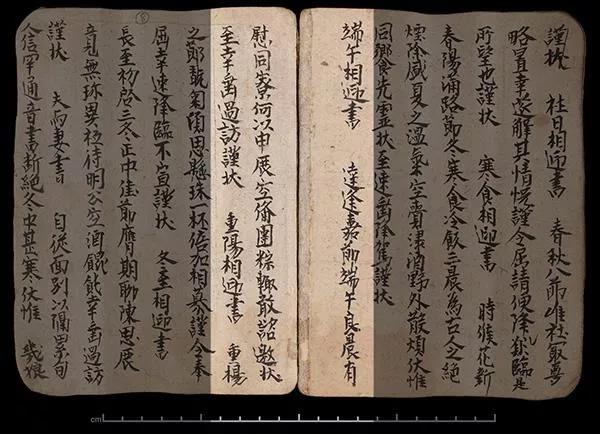 謹狀 社日相迎書 春秋八節唯社最尊
略置幸邀解其情愰謹令屈請便降臨是
所望也謹狀 寒食相迎書 時候花新
春陽滿路節冬寒食冷飲三晨為古人之絕
煙除盛夏之溫氣空賫酒野外散煩伏惟
同饗先靈狀至速垂降駕謹狀
端午相迎書 達逢嘉節端午良晨有
慰同寮何以申展空備團粽輙敢諮邀狀
至幸垂過訪謹狀 重陽相迎書 重楊
之節翫菊傾思懸珠一杯倍加相慕謹令奉
屈幸速降臨不宣謹狀 冬至相迎書
長至初啓三冬正中佳節膺期聊陳思展
竟無珍異祗待明公空酒餛飩幸垂過訪
謹狀 夫与妻書 自從面別以隔累旬
人信罕通音書斷絕冬中甚寒伏惟 幾娘
cm